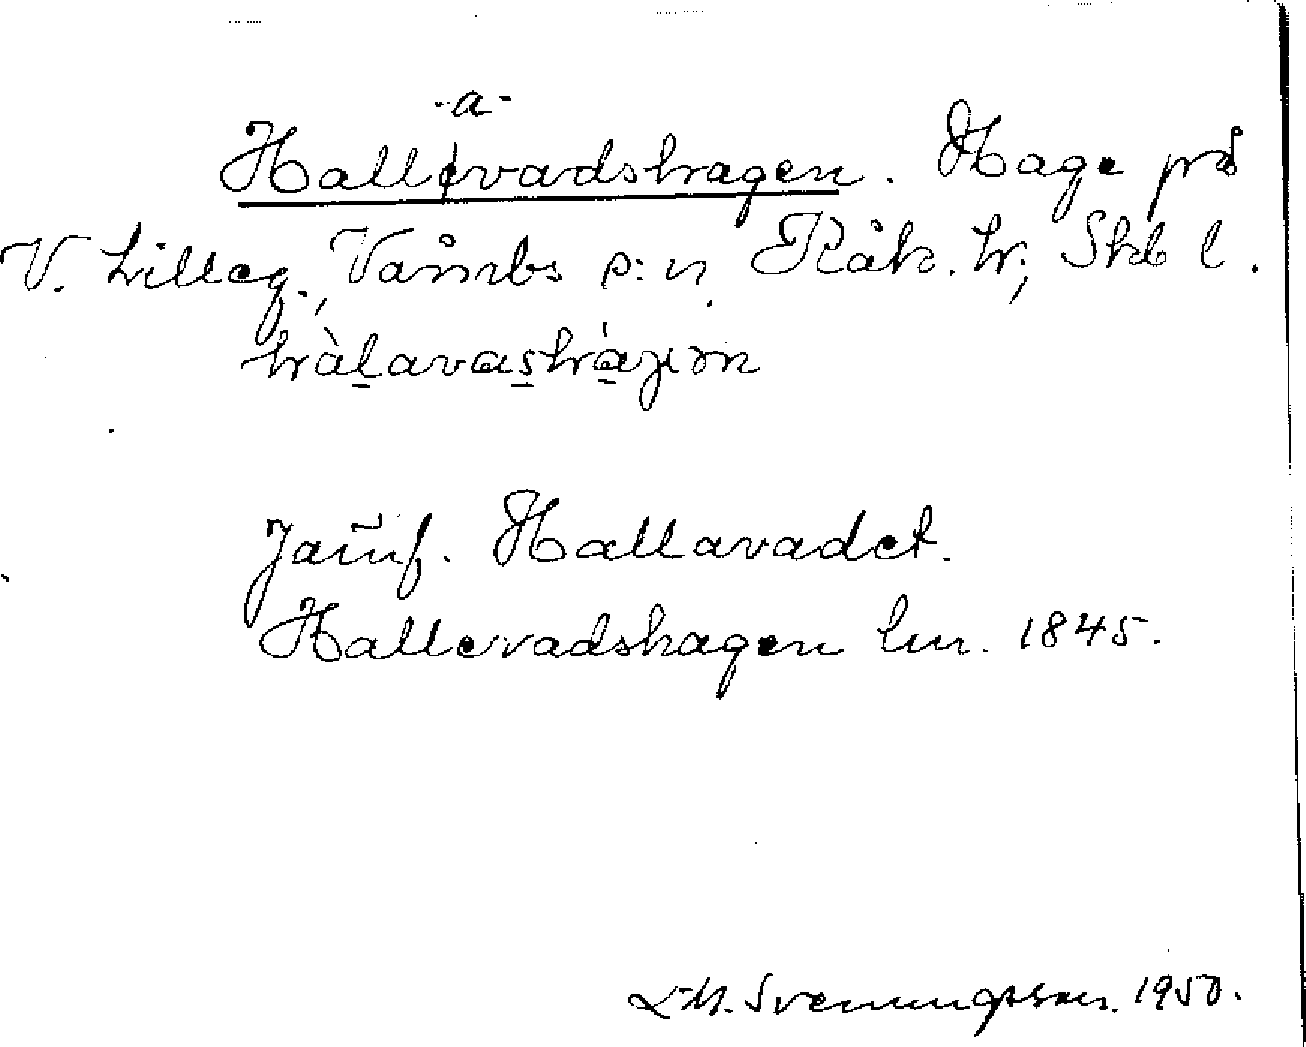 -a-
Hallevadshagen. Hage på
V. Lilleg., Våmbs s:n, Kåk. hr; Skb l.
hàlavashágən
Jämf. Hallavadet.
Hallevadshagen lm. 1845.
L-M. Svenungsson. 1950.